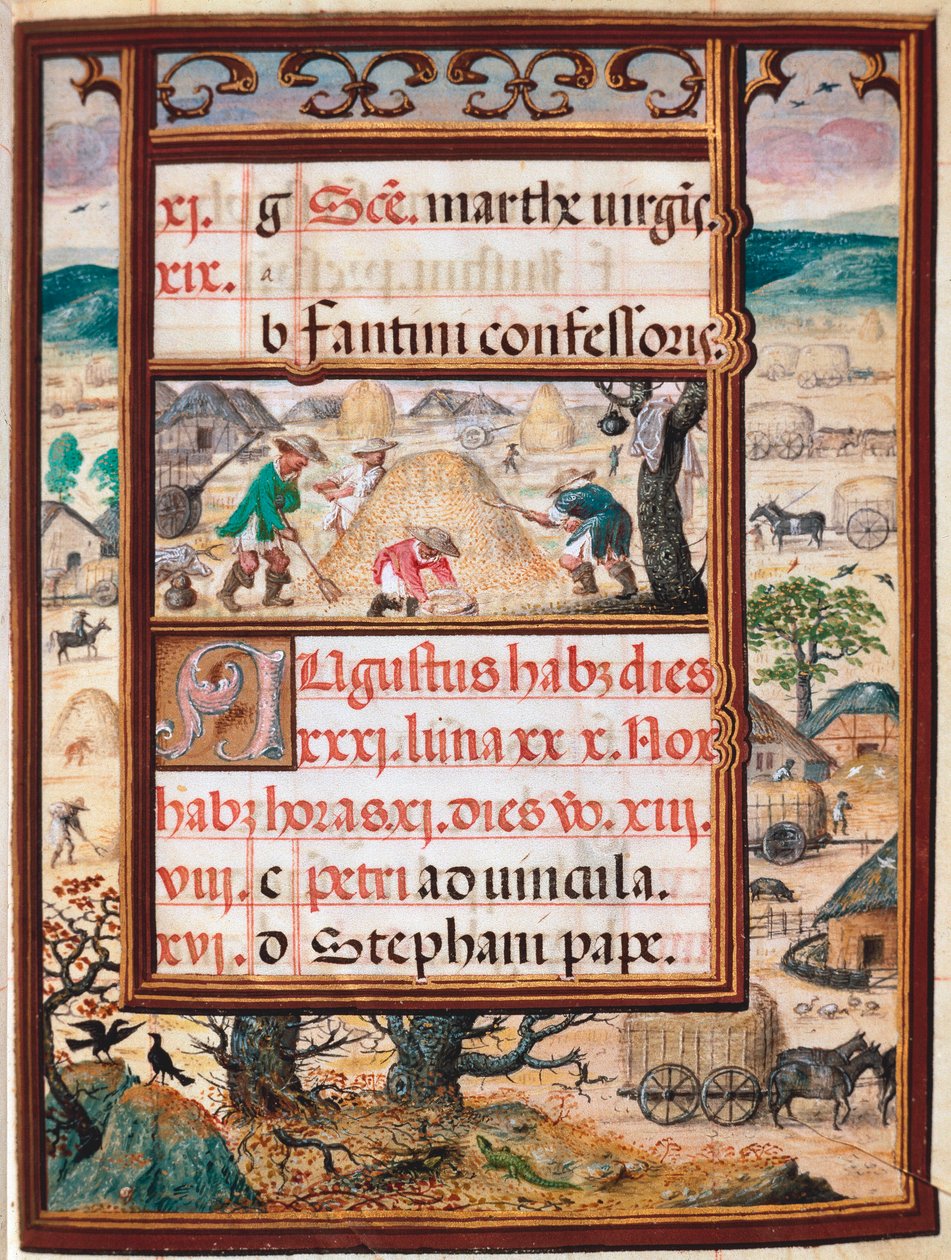 xj. g Scē. marthe uirgis.
xix. a
b fantini confessoris.
AUgustus habꝫ dies
xxxj. luna xx x. Nox
habꝫ horas.xj. dies vo. xiij.
viij. c petri ad uincula.
xvj. d Stephani pape.